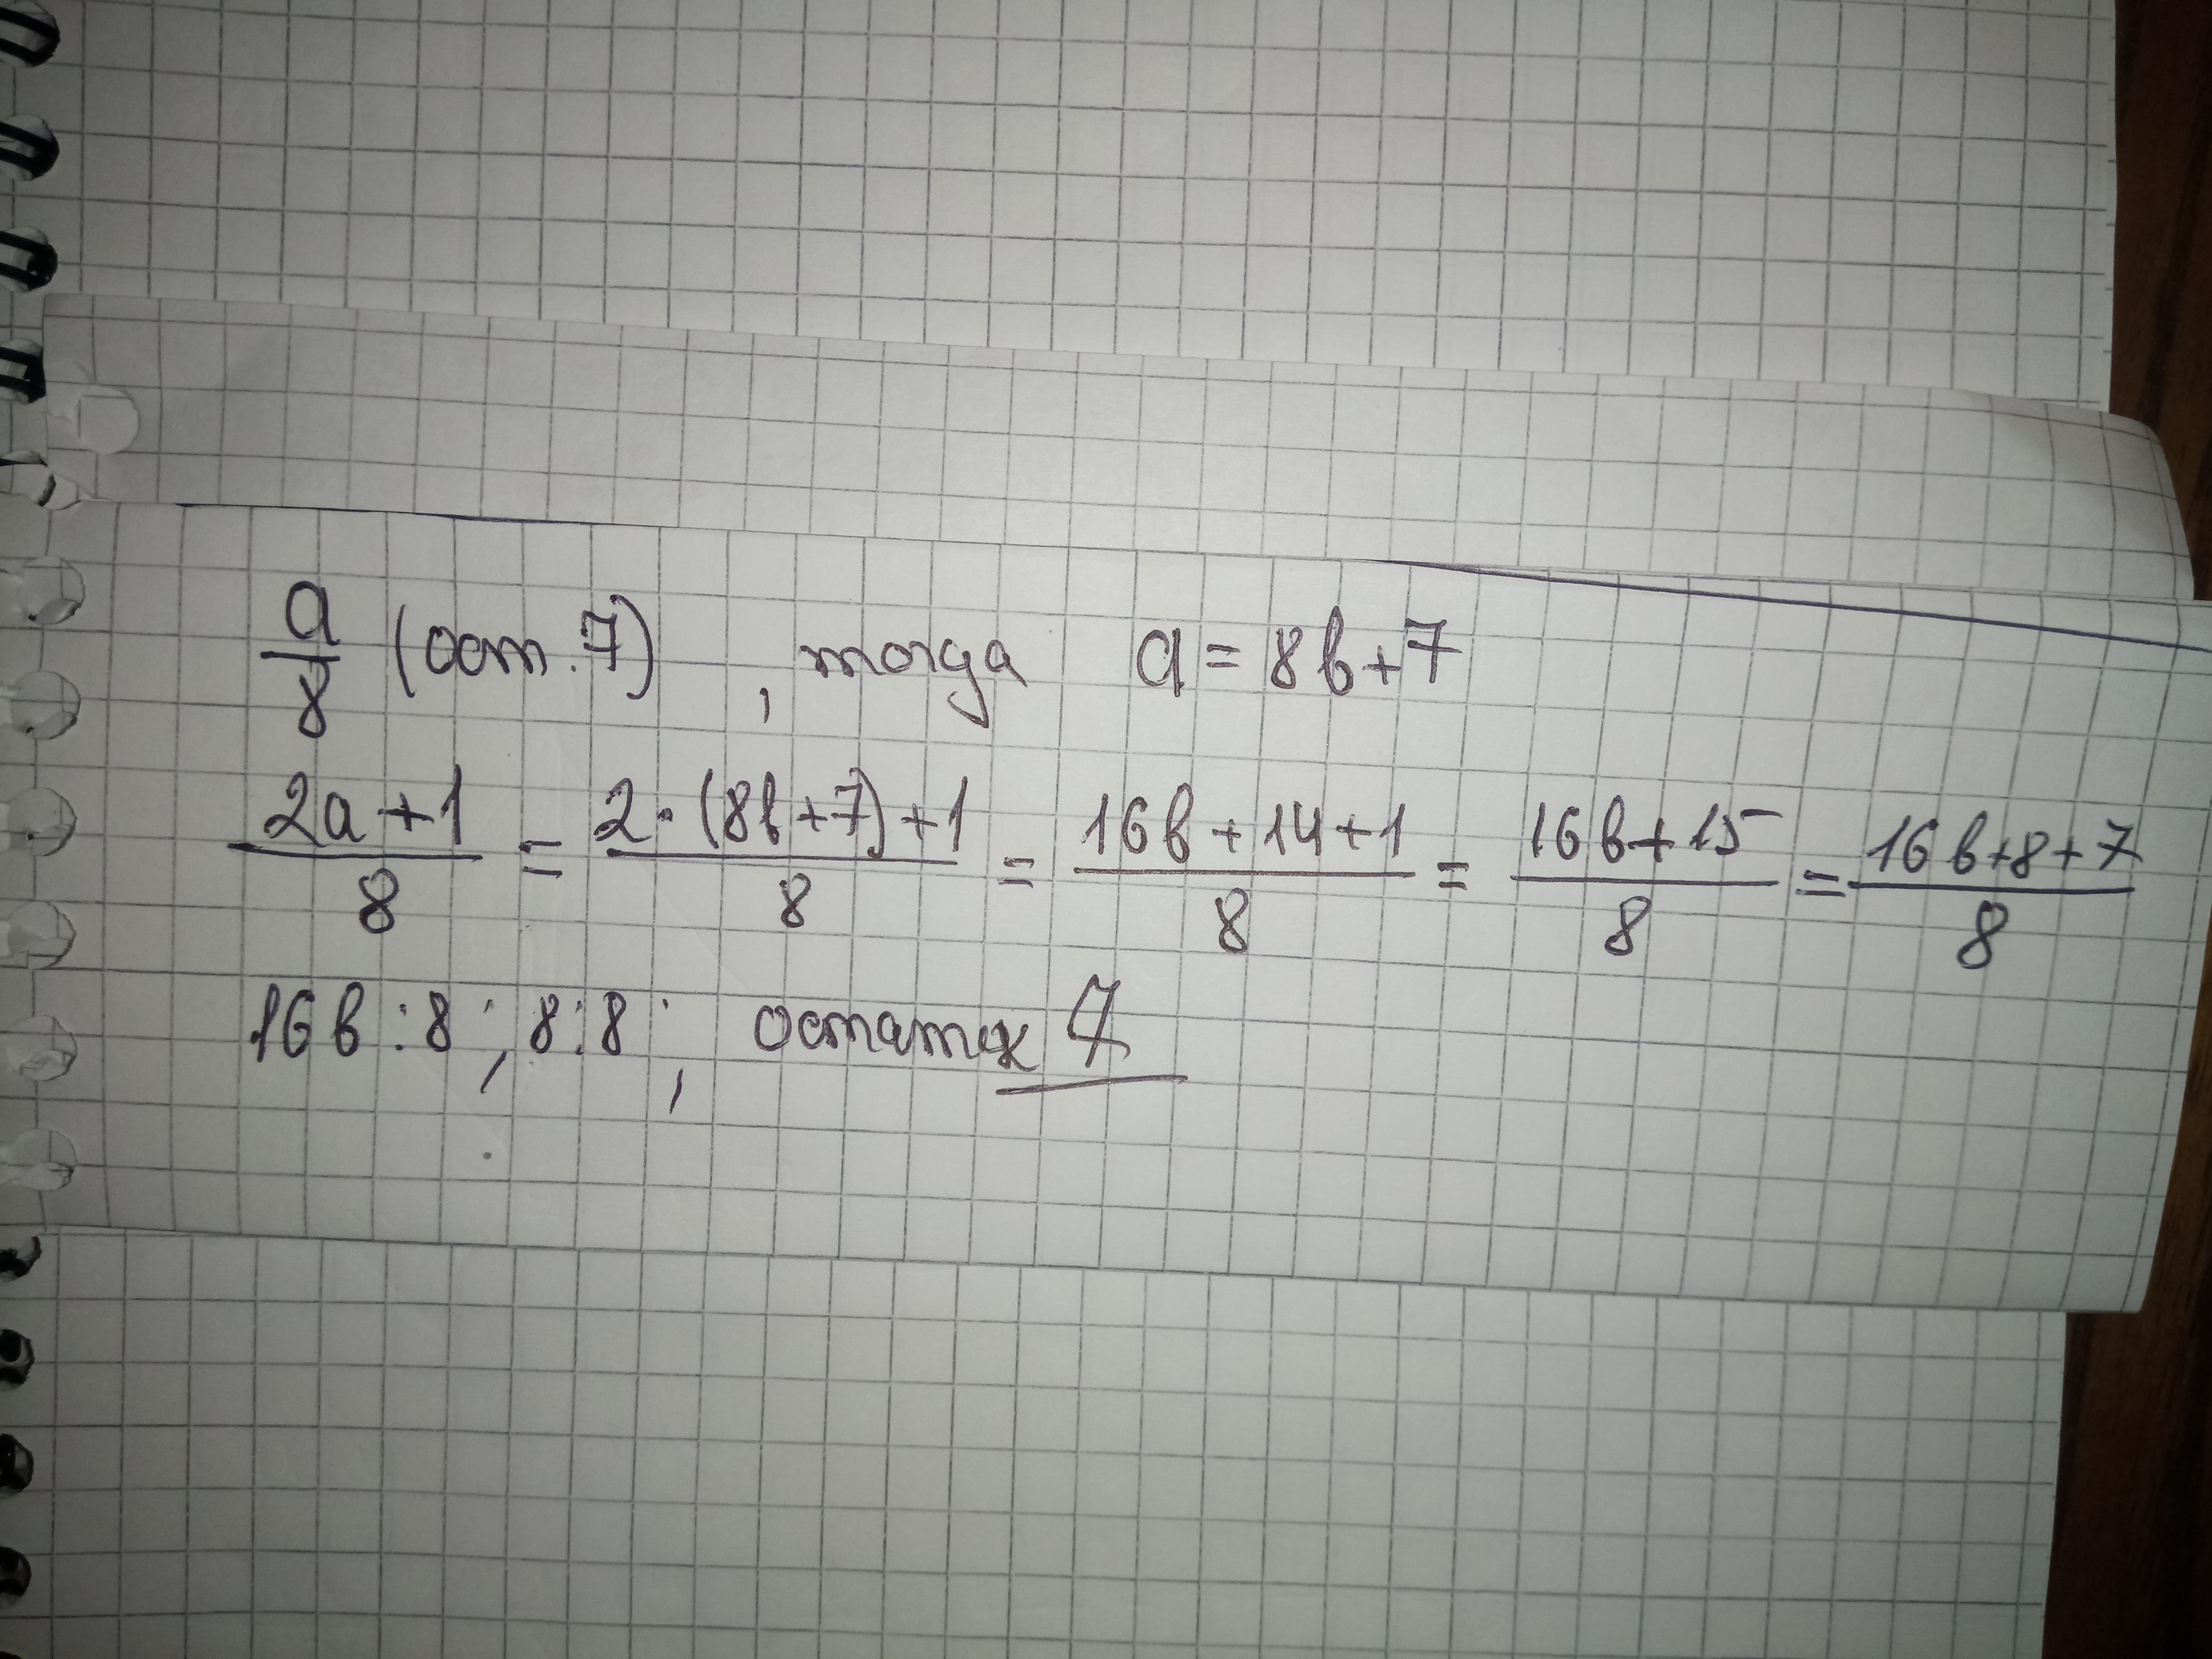 a/8 (ост. 7), тогда a = 8b+7
(2a+1)/8 = (2·(8b+7)+1)/8 = (16b+14+1)/8 = (16b+15)/8 = (16b+8+7)/8
16b : 8 ; 8 : 8 ; остаток 7